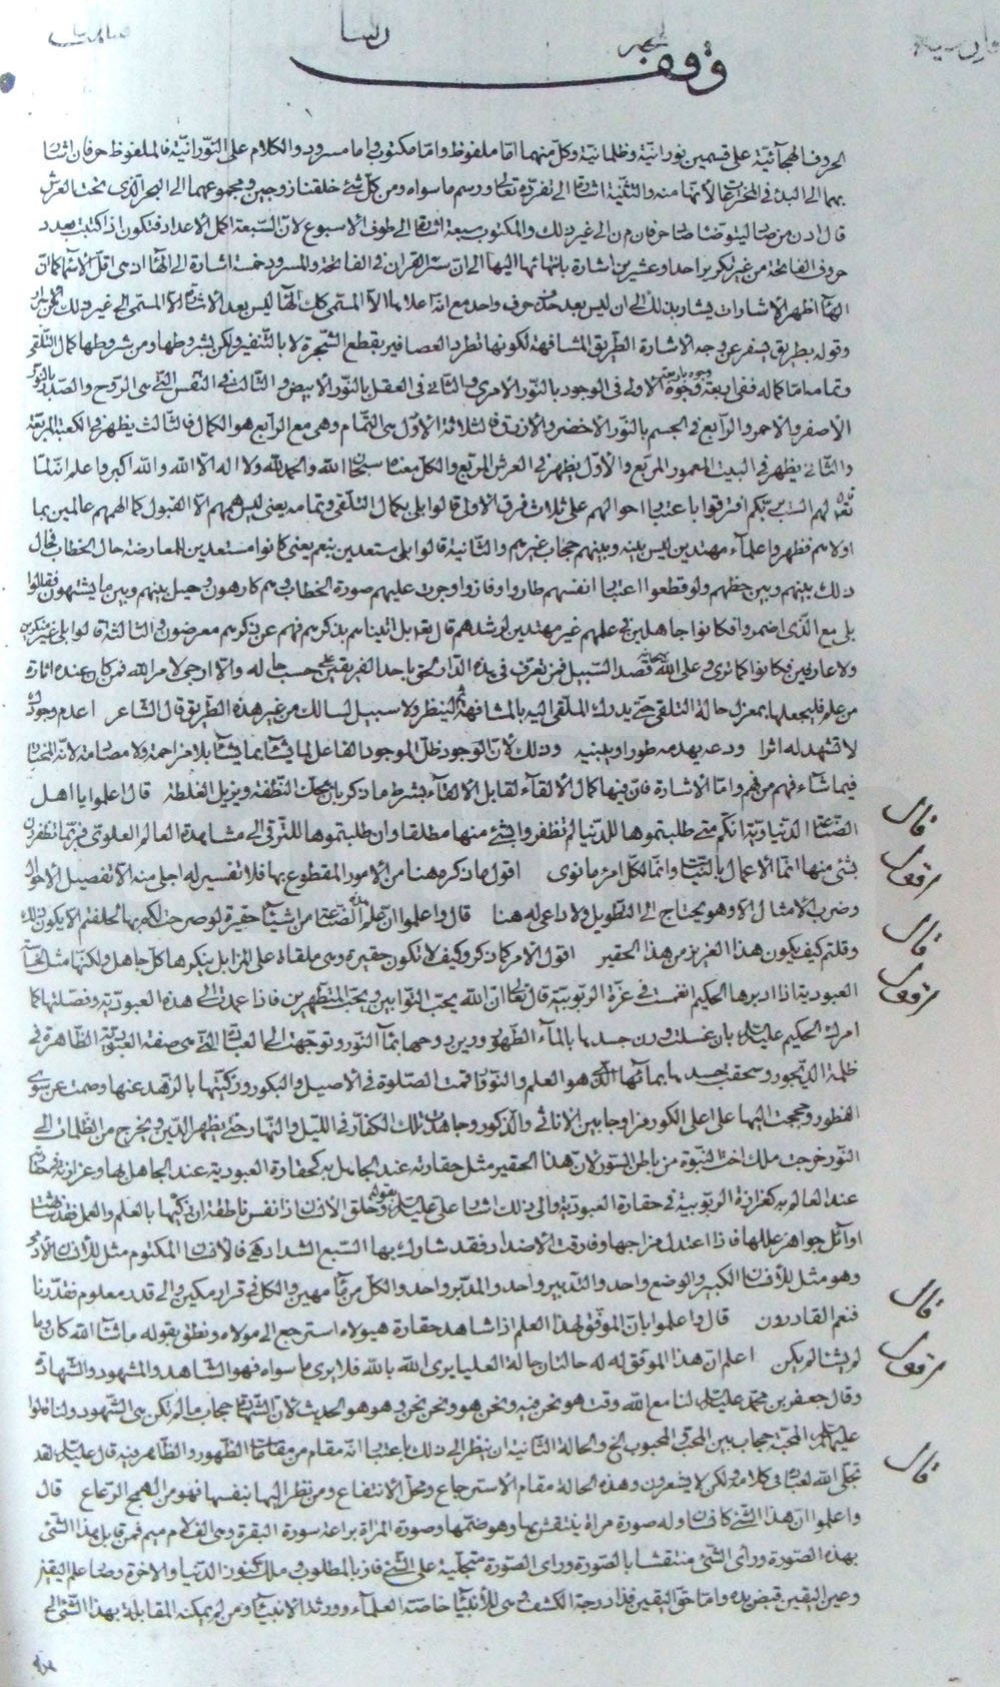 وقف
الحروف الهجآئيّة على قسمين نورانيّة وظلمانيّة وكلّ منهما امّا ملفوظ وامّا مكتوب واما مسرود والكلام على النّورانيّة فالملفوظ حرفان
بهما الى البدئ في المخترعات لأنّها منه والتثنية اشارة الى تفرّده تعالى ورسم ما سواه ومن كلّ شئ خلقنا زوجين ومجموعهما الى البحر الّذى تحت العرش
قال ادن من صاد ليتوضّأ حرفان من الى غير ذلك والمكتوب سبعة اشارة الى طوف الاسبوع لانّ السّبعة اكمل الاعداد فتكون اذا كتبت بعدد
حروف الفاتحة من غير تكرير احد وعشرين اشارة بانتهائها اليها الى انّ سرّ القران في الفاتحة والمسرود خمسة اشارة الى الهآء اذ هى اقلّ الاسماء كما انّ
الهآء اظهر الاشارات يشار بذلك الى ان ليس بعد حرف واحد مع انّه اعلاها الاّ المسمّى كذلك الهآء ليس بعد الاشارة الاّ المسمّى الى غير ذلك
وقوله بطريق يسفر عن وجه الاشارة الطّريق المشافهة لكونها تطرد العصافير بقطع الشّجرة لا بالتّنفير ولكن بشروطها ومن شروطها كمال التّلقى
وتمامه امّا كماله ففى اربعة وجوه الاولى فى الوجود بالنّور الامرى والثّانى فى العقل بالنّور الابيض والثّالث فى النّفس الّتى هى الرّوح والصّدر
الأصفر والأحمر والرّابع فى الجسم بالنّور الأخضر والأزرق فالثلاثة الأوّل هى التّمام وهى مع الرّابع هو الكمال فالثّالث يظهر فى الكعبة المربّعة
والثّانى يظهر فى البيت المعمور المربّع والأوّل يظهر فى العرش المربّع والكلّ معنا سبحان الله والحمد لله ولا اله الاّ الله والله اكبر واعلم انّه لمّا
لهم الست بربّكم افترقوا باعتبار احوالهم على ثلاث فرق الاولى قالوا بلى بكمال التلّقى وتمامه يعنى ليس همّهم الاّ القبول كما الهمهم عالمين بما
اولاهم فظهروا علمآء مهتدين ليس بينه وبينهم حجاب غيرهم والثّانية قالوا بلى مستعدين بنعم يعنى كانوا مستعدين للمعارضة حال الخطاب فحال
ذلك بينهم وبين حظّهم ولو قطعوا اعتبار انفسهم طاروا وفازوا وجرت عليهم صورة الخطاب وهم كارهون وحيل بينهم وبين ما يشتهون فقالوا
بلى مع الّذى اضمروا فكانوا جاهلين فى علمهم غير مهتدين لرشدهم قال تعالى بل اتيناهم بذكرهم فهم عن ذكرهم معرضون والثالثة قالوا بلى غير منكرين
ولا عارفين فكانوا كما ترى وعلى الله قصد السّبيل فمن تعرّف فى هذه الدّار لحق باحد الفريقين على حسب حاله والاّ ارجى لامر الله فمن كان عنده اثارة
من علم فليجعلها بمعزل حالة التلّقى حتّى يدرك الملقى اليه بالمشافهة ثم لينظر ولا سبيل لسالك من غير هذه الطّريق قال الشّاعر اعدم وجودك
لا تشهد له اثرا ودعه يهدمه طورا ويبنيه وذلك لأنّ الوجود ظلّ الموجود الفاعل لما يشآء بما يشآء بلا مزاحمة ولا مصادمة لانّه المختار
فيما شاء فهم من فهم وامّا الاشارة فانّ فيها كمال الألقاء لقابل الألقاء بشرط ما ذكر بان يمحك النّطفة ويزيل الغلظة قال اعلموا يا اهل
الصّناعة الدّنياويّة انكم متى طلبتموها للدّنيا لم تظفروا بشئ منها مطلقا وان طلبتموها للتّرقى الى مشاهدة العالم العلوىّ فربّما تظفرون
بشئ منها انّما الأعمال بالنيّات وانّما لكلّ امرء ما نوى اقول ما ذكره هنا من الأمور المقطوع بها فلا تفسير له اجلى منه الاّ تفصيل الاحوال
وضرب الامثال الاّ وهو يحتاج الى التّطويل ولا داعى له هنا قال واعلموا انّ علم الصّناعة من اشياء حقيرة لو صرحت لكم بها لحلفتم الاّ يكون ذلك
وقلتم كيف يكون هذا العزيز من هذا الحقير اقول الامر كما ذكر وكيف لا تكون حقيرة وهى ملقاة على المزابل ينكرها كلّ جاهل ولكنّها مثل
العبوديّة اذا ادبرها الحكيم انغمست فى عزّة الرّبوبيّة قال تعالى انّ الله يحبّ التّوابين ويحبّ المتطهّرين فاذا عمدت الى هذه العبوديّة وفصّلتها كما
امرك الحكيم عليه السلام بان غسلت درن جسدها بالمآء الطّهور ودرن روحها بمآء النّور وتوجّهت الى العبادة الّتى هى صفة العبوديّة الظّاهرة فى
ظلمة الدّيجور وسحقت جسدها بمآئها الّذى هو العلم والتّوق اقمت الصّلوة فى الأصيل والبكور وزكيّتها بالزّهد عنها وصمت عن سوى
الفطور وحججت اليها على اعلى الكور فزاوجا بين الاناثى والذّكور وجاهدت تلك الكفّار فى اللّيل والنّهار حتّى يظهر الدّين ويخرج من الظّلمات الى
النّور خرجت ملك اخت النّبوة من باطن السّتور لانّ هذا الحقير مثل حقارته عند الجاهل به كحقارة العبودية عند الجاهل بها وعزازته
عند العالم به كعزازة الرّبوبية فى حقارة العبوديّة والى ذلك اشار على عليه السلام بقوله وخلق الأنسان ذا نفس ناطقة ان زكّيها بالعلم والعمل فقد شابهت
اوآئل جواهر عللها فاذا اعتدل مزاجها وفارقت الأضداد فقد شارك بها السّبع الشّداد فالأنسان المكتوم مثل للأنسان
وهو مثل للأنسان الكبير والوضع واحد والتّدبير واحد والمدبّر واحد والكلّ من مآء مهين والكلّ فى قرار مكين والى قدر معلوم فقدّرنا
فنعم القادرون قال واعلموا بانّ الموفّق لهذا العلم اذا شاهد حقارة هيولاه استرجع الى مولاه ونطق بقوله ما شآء الله كان وما
لم يشأ لم يكن اعلم انّ هذا الموفّق له له حالتان حالة العليا يرى الله بالله فلا يرى ما سواه فهو الشّاهد والمشهود والشّهادة
وقال جعفر بن محمّد عليه السلام لنا مع الله وقت هو نحن فيه ونحن هو ونحن نحن وهو هو الحديث لأنّ الشّهادة حجاب ما لم تكن هى الشّهود ولذا قالوا
عليهم السلام المحبّة حجاب بين المحبّ والمحبوب الخ والحالة الثّانية ان ينظر الى ذلك باعتبار انّه مقام من مقامات الظّهور والظّاهر فيه قال عليه السلام لقد
تجلّى الله لعباده فى كلامه ولكن لا يشعرون وهذه الحالة مقام الاسترجاع ومحلّ الانتفاع ومن نظر اليها بنفسها فهو من الهمج الرّعاع قال
واعلموا انّ هذا الشّئ كانسان وله صورة مرآة ينتقش بها وهو ضمّها وصورة المرآة براعة سورة البقرة وهى الف لام ميم فمن قابل هذا الشّئ
بهذه الصّورة ورأى الشّئ منتقشا بالصّورة ورأى الصّورة متجلّية على الشّئ فاز بالمطلوب وملك كنوز الدّنيا والاخرة وصار علم اليقين
وعين اليقين قبض يده وامّا حقّ اليقين فذا درجة الكشف وهى للأنبيآء خاصّة العلمآء وورثة الأنبيآء ومن لم يمكنه المقابلة بهذا الشّئ الخ
قال
اقول
قال
اقول
قال
اقول
قال